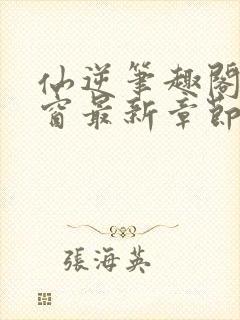 仙逆筆趣閣
窗最新章節
張海英